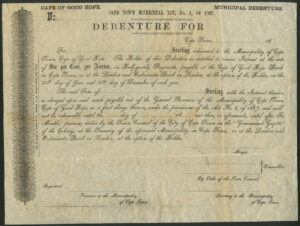 CAPE OF GOOD HOPE.
MUNICIPAL DEBENTURE.
CAPE TOWN MUNICIPAL ACT, No. 1, OF 1867.
No.
DEBENTURE FOR
Cape Town, 18
For Sterling advanced to the Municipality of Cape
Town, Cape of Good Hope. The Holder of this Debenture is entitled to receive Interest at the rate
of Six per Cent. per Annum, in Half-yearly Payments payable at the Cape of Good Hope Bank
in Cape Town, or at the London and Westminster Bank in London, at the option of the Holder, on the
30th day of June and 31st day of December of each year.
The said Sum of Sterling with the Interest thereon
is charged upon and made payable out of the General Revenue of the Municipality of Cape Town,
Cape of Good Hope, as a first charge thereon, under the provisions of Act No. 1 of 1867, and will
not be redeemable until the day of 18
Months' previous notice by the Town Council of the City of Cape Town in the Government Gazette
of the Colony, at the Treasury of the aforesaid Municipality in Cape Town, or at the London and
Westminster Bank in London, at the option of the Holder.
Mayor.
Councillors.
By Order of the Town Council.
Registered
Treasurer to the Municipality
of Cape Town.
Secretary to the Municipality
of Cape Town.